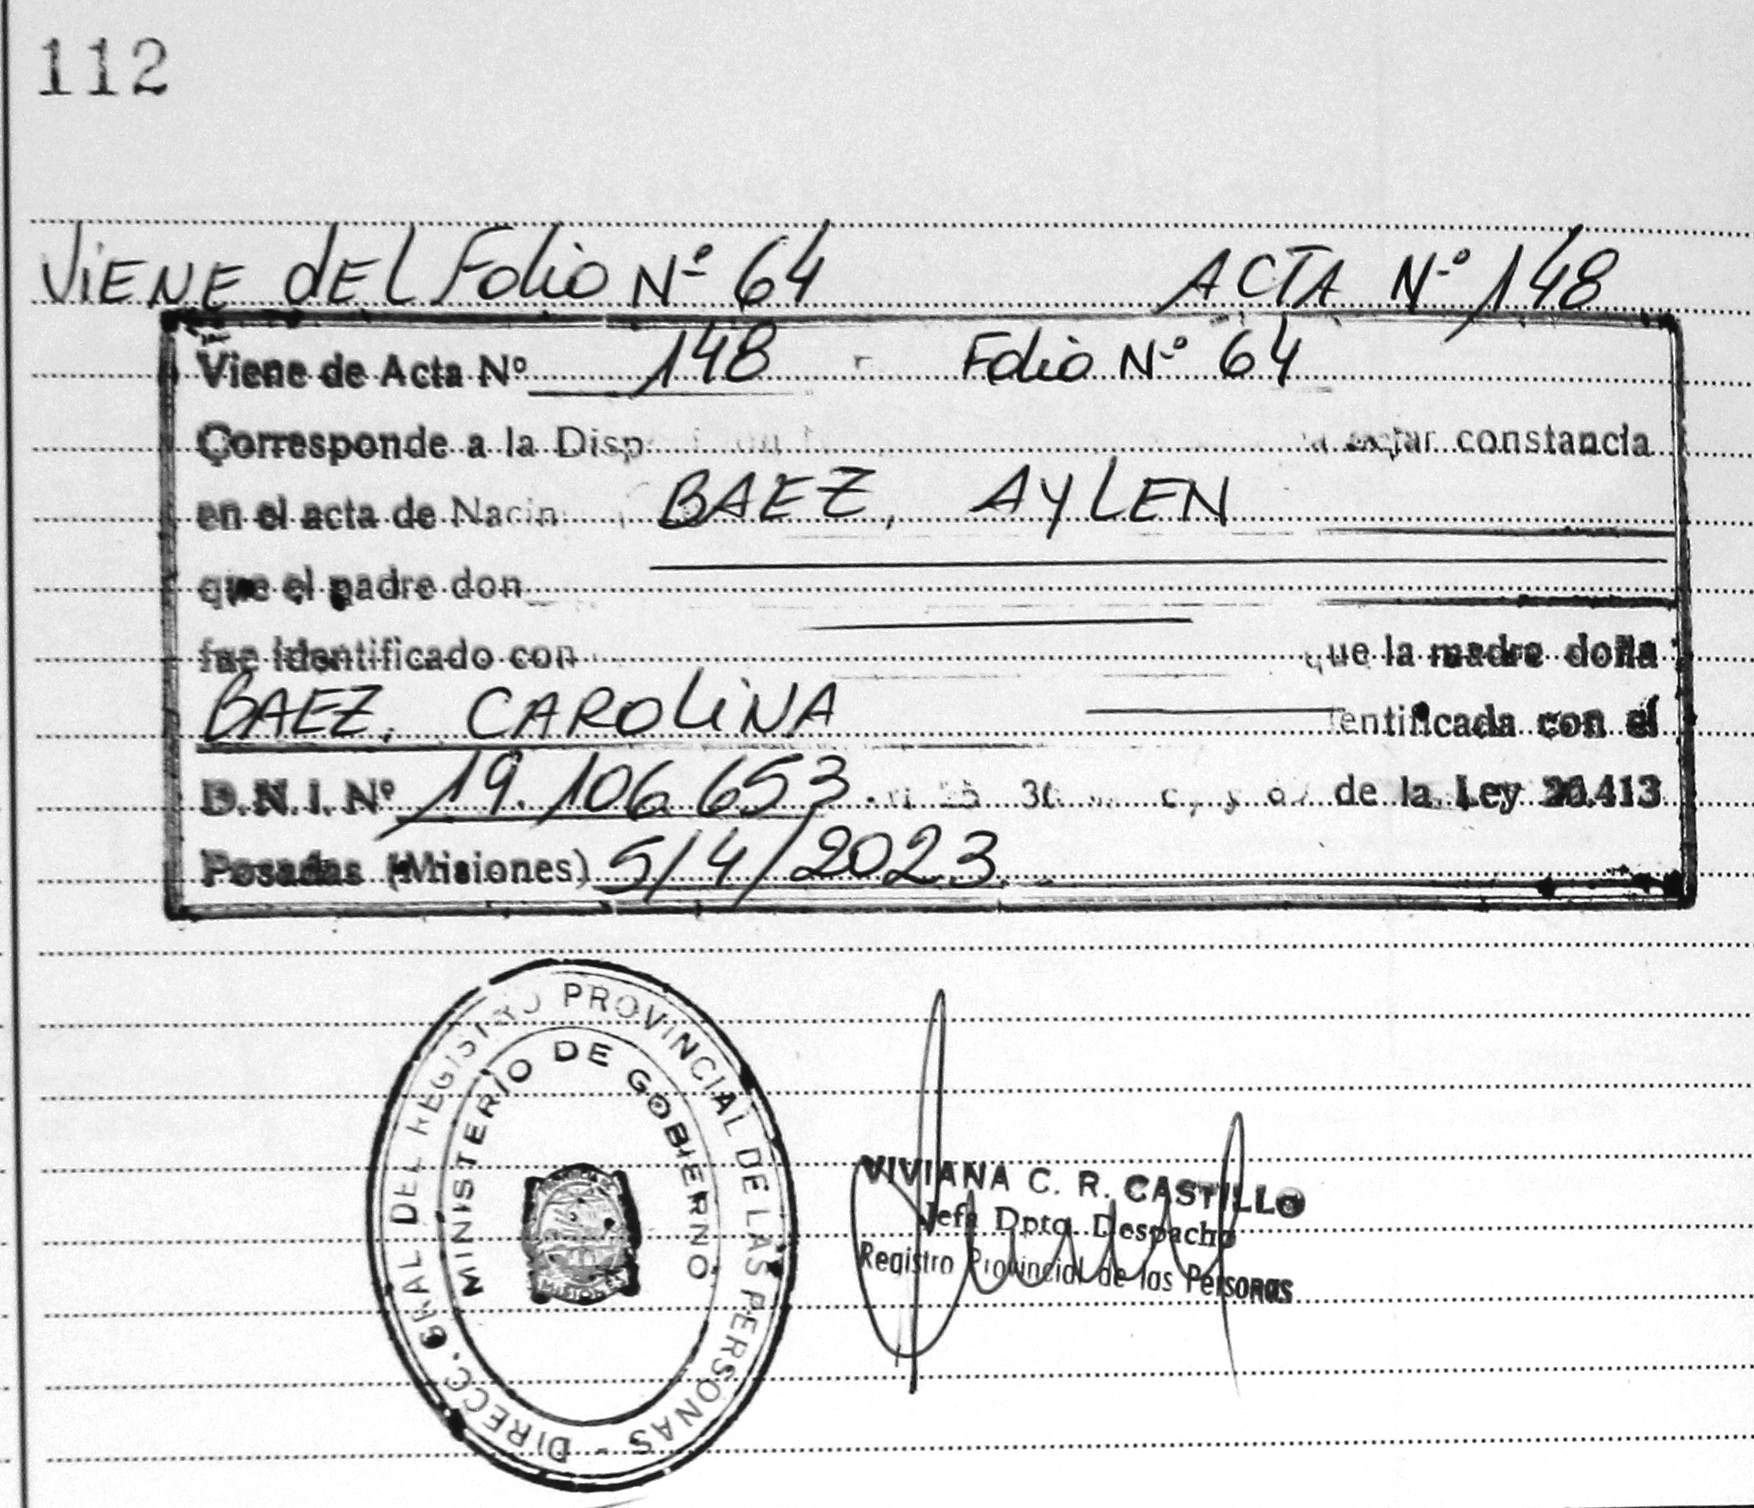 112
ViENE dEL Folio Nº 64 ACTA Nº 148
Viene de Acta Nº 148 Folio Nº 64
Corresponde a la Disp constancia
en el acta de Nacim BAEZ, AYLEN
que el padre don
fue identificado con que la madre doña
BAEZ, CAROLiNA entificada con el
D.N.I. Nº 19.106.653 de la Ley 26.413
Posadas (Misiones) 5/4/2023
DIRECC. GRAL DEL REGISTRO PROVINCIAL DE LAS PERSONAS -
MINISTERIO DE GOBIERNO
MISIONES
VIVIANA C. R. CASTILLO
Jefa Dpto. Despacho
Registro Provincial de las Personas